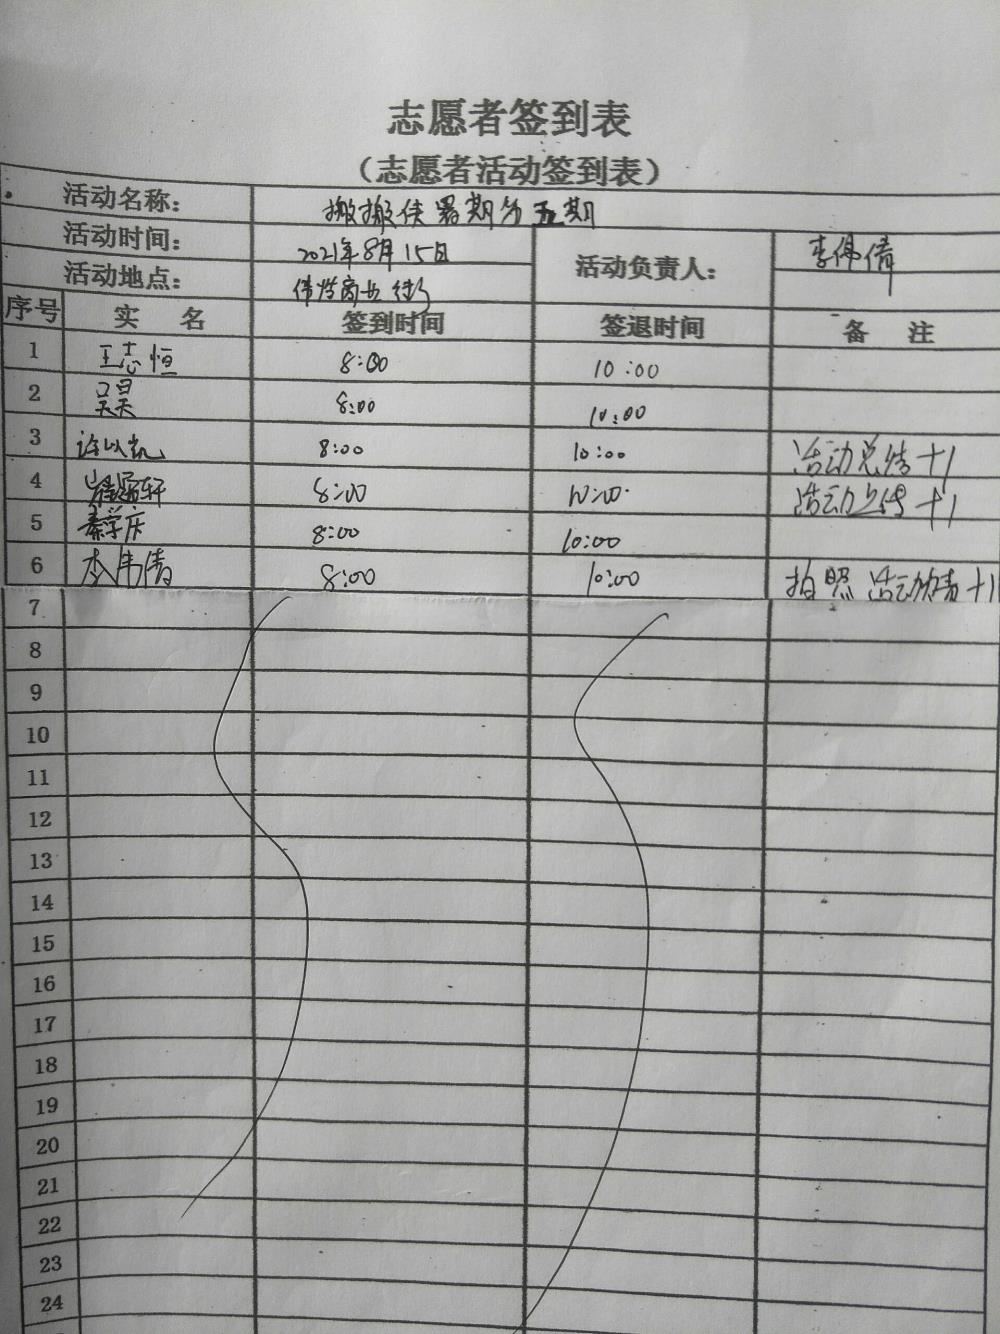 志愿者签到表
（志愿者活动签到表）
活动名称： 搬搬侠暑期第五期
活动时间： 2021年8月15日 活动负责人： 李伟倩
活动地点： 商业街
序号 实 名 签到时间 签退时间 备 注
1 王志恒 8:00 10:00
2 吴昊 8:00 10:00
3 许以凯 8:00 10:00 活动总结+1
4 轩 8:00 10:00 活动上传+1
5 秦学庆 8:00 10:00
6 李伟倩 8:00 10:00 拍照 活动 +1
7
8
9
10
11
12
13
14
15
16
17
18
19
20
21
22
23
24